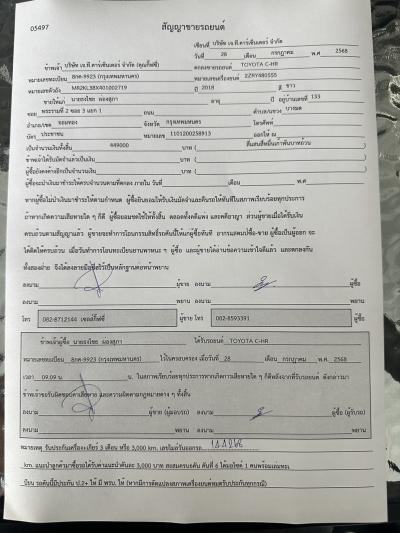 05497
สัญญาขายรถยนต์
เขียนที่ บริษัท เจ.ที.คาร์เซ็นเตอร์ จำกัด
วันที่ 28 เดือน กรกฎาคม พ.ศ 2568
ข้าพเจ้า บริษัท เจ.ที.คาร์เซ็นเตอร์ จำกัด (คุณกี้ฟซี่) ตกลงขายรถยนต์ TOYOTA C-HR
หมายเลขทะเบียน 8กค-9923 (กรุงเทพมหานคร) หมายเลขเครื่องยนต์ 2ZRY480555
หมายเลขตัวถัง MR2KL3BX401002719 ปี 2018 สี ขาว
ขายให้แก่ นายธงไชย ผองสุภา อายุ ปี อยู่บ้านเลขที่ 133
ซอย พระรามที่ 2 ซอย 3 แยก 1 ถนน ตำบล/แขวง บางมด
อำเภอ/เขต จอมทอง จังหวัด กรุงเทพมหานคร โทรศัพท์
บัตร ประชาชน หมายเลข 1101200258913 ออกให้ ณ
เป็นจำนวนเงินทั้งสิ้น 449000 บาท ( สี่แสนสี่หมื่นเก้าพันบาทถ้วน )
ข้าพเจ้าได้รับมัดจำแล้วเป็นเงิน บาท ( )
ผู้ซื้อยังคงค้างอีกเป็นจำนวนเงิน บาท ( )
ผู้ซื้อจะนำเงินมาชำระให้ครบจำนวนตามที่ตกลง ภายใน วันที่ เดือน พ.ศ
หากผู้ซื้อไม่นำเงินมาชำระให้ตามกำหนด ผู้ซื้อยินยอมให้ริบเงินมัดจำและคืนรถให้ทันทีในสภาพเรียบร้อยทุกประการ
ถ้าหากเกิดความเสียหายใด ๆ ก็ดี ผู้ซื้อยอมชดใช้ให้ทั้งสิ้น ตลอดทั้งคดีแพ่ง และคดีอาญา ส่วนผู้ขายเมื่อได้รับเงิน
ครบถ้วนตามสัญญาแล้ว ผู้ขายจะทำการโอนกรรมสิทธิ์รถคันนี้ให้แก่ผู้ซื้อทันที อากรแสตมป์ซื้อ-ขาย ผู้ซื้อเป็นผู้ออก จะ
ได้คิดให้ครบถ้วน เมื่อวันทำการโอนทะเบียนยานพาหนะ ฯ ผู้ซื้อ และผู้ขายได้อ่านข้อความเข้าใจดีแล้ว และตกลงกัน
ทั้งสองฝ่าย จึงได้ลงลายมือชื่อไว้เป็นหลักฐานต่อหน้าพยาน
ลงนาม ผู้ขาย ลงนาม ผู้ซื้อ
ลงนาม พยาน ลงนาม พยาน
โทร 082-8712144 เซลล์กี้ฟซี่ ผู้ขาย โทร 002-8593391 ผู้ซื้อ
ข้าพเจ้าผู้ซื้อ นายธงไชย ผองสุภา ได้รับรถยนต์ TOYOTA C-HR
หมายเลขทะเบียน 8กค-9923 (กรุงเทพมหานคร) ไว้ในครอบครอง เมื่อวันที่ 28 เดือน กรกฎาคม พ.ศ. 2568
เวลา 09.09 น. น. ในสภาพเรียบร้อยทุกประการหากเกิดการเสียหายใด ๆ ก็ดีหลังจากที่รับรถยนต์ ดังกล่าวมา
ข้าพเจ้าขอรับผิดชอบค่าเสียหาย และความผิดตามกฎหมายต่าง ๆ ทั้งสิ้น
ลงนาม ผู้ขาย (ผู้มอบรถ) ลงนาม ผู้ซื้อ (ผู้รับรถ)
ลงนาม พยาน ลงนาม พยาน
หมายเหตุ รับประกันเครื่องเกียร์ 3 เดือน หรือ 3,000 km. เลขไมล์วันออกรถ
km. แนะนำลูกค้ามาซื้อรถได้รับค่าแนะนำคันละ 3,000 บาท สะสมครบ5คัน คันที่ 6 ได้มอไซค์ 1 คันพร้อมเล่มทะเ
บียน รถคันนี้มีประกัน ป.2+ ให้ มี พรบ. ให้ (หากมีการดัดแปลงสภาพเครื่องยนต์หมดรับประกันทุกกรณี)